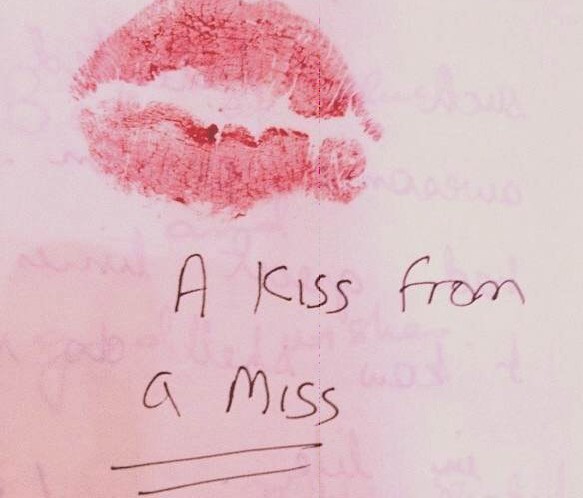 A Kiss from
a Miss